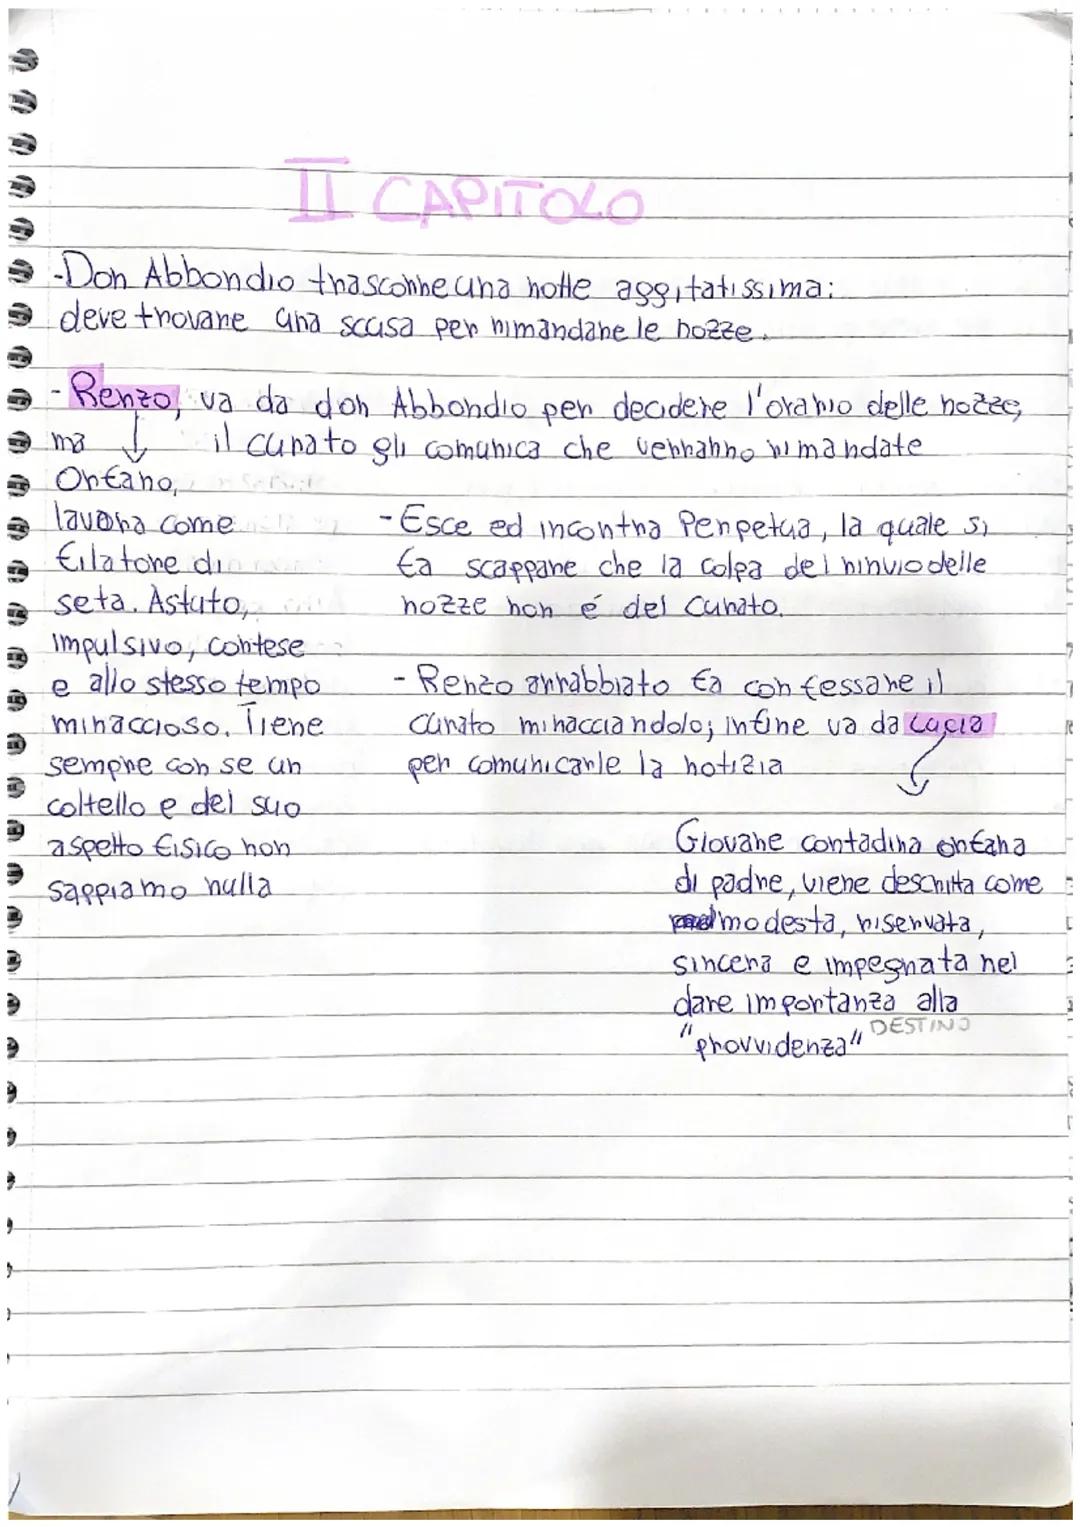 II CAPITOLO
-Don Abbondio trascorre una notte aggitatissima:
deve trovare una scusa per rimandare le nozze.
- Renzo, va da don Abbondio per decidere l'orario delle nozze,
ma il curato gli comunica che verranno rimandate
Orfano,
lavora come
filatore di
seta. Astuto,
impulsivo, cortese
e allo stesso tempo
minaccioso. Tiene
sempre con se un
coltello e del suo
aspetto fisico non
sappiamo nulla
- Esce ed incontra Perpetua, la quale si
fa scappare che la colpa del rinvio delle
nozze non é del curato.
- Renzo arrabbiato fa confessare il
curato minacciandolo; infine va da Lucia
per comunicarle la notizia
Giovane contadina orfana
di padre, viene descritta come
modesta, riservata,
sincera e impegnata nel
dare importanza alla
"provvidenza" DESTINO